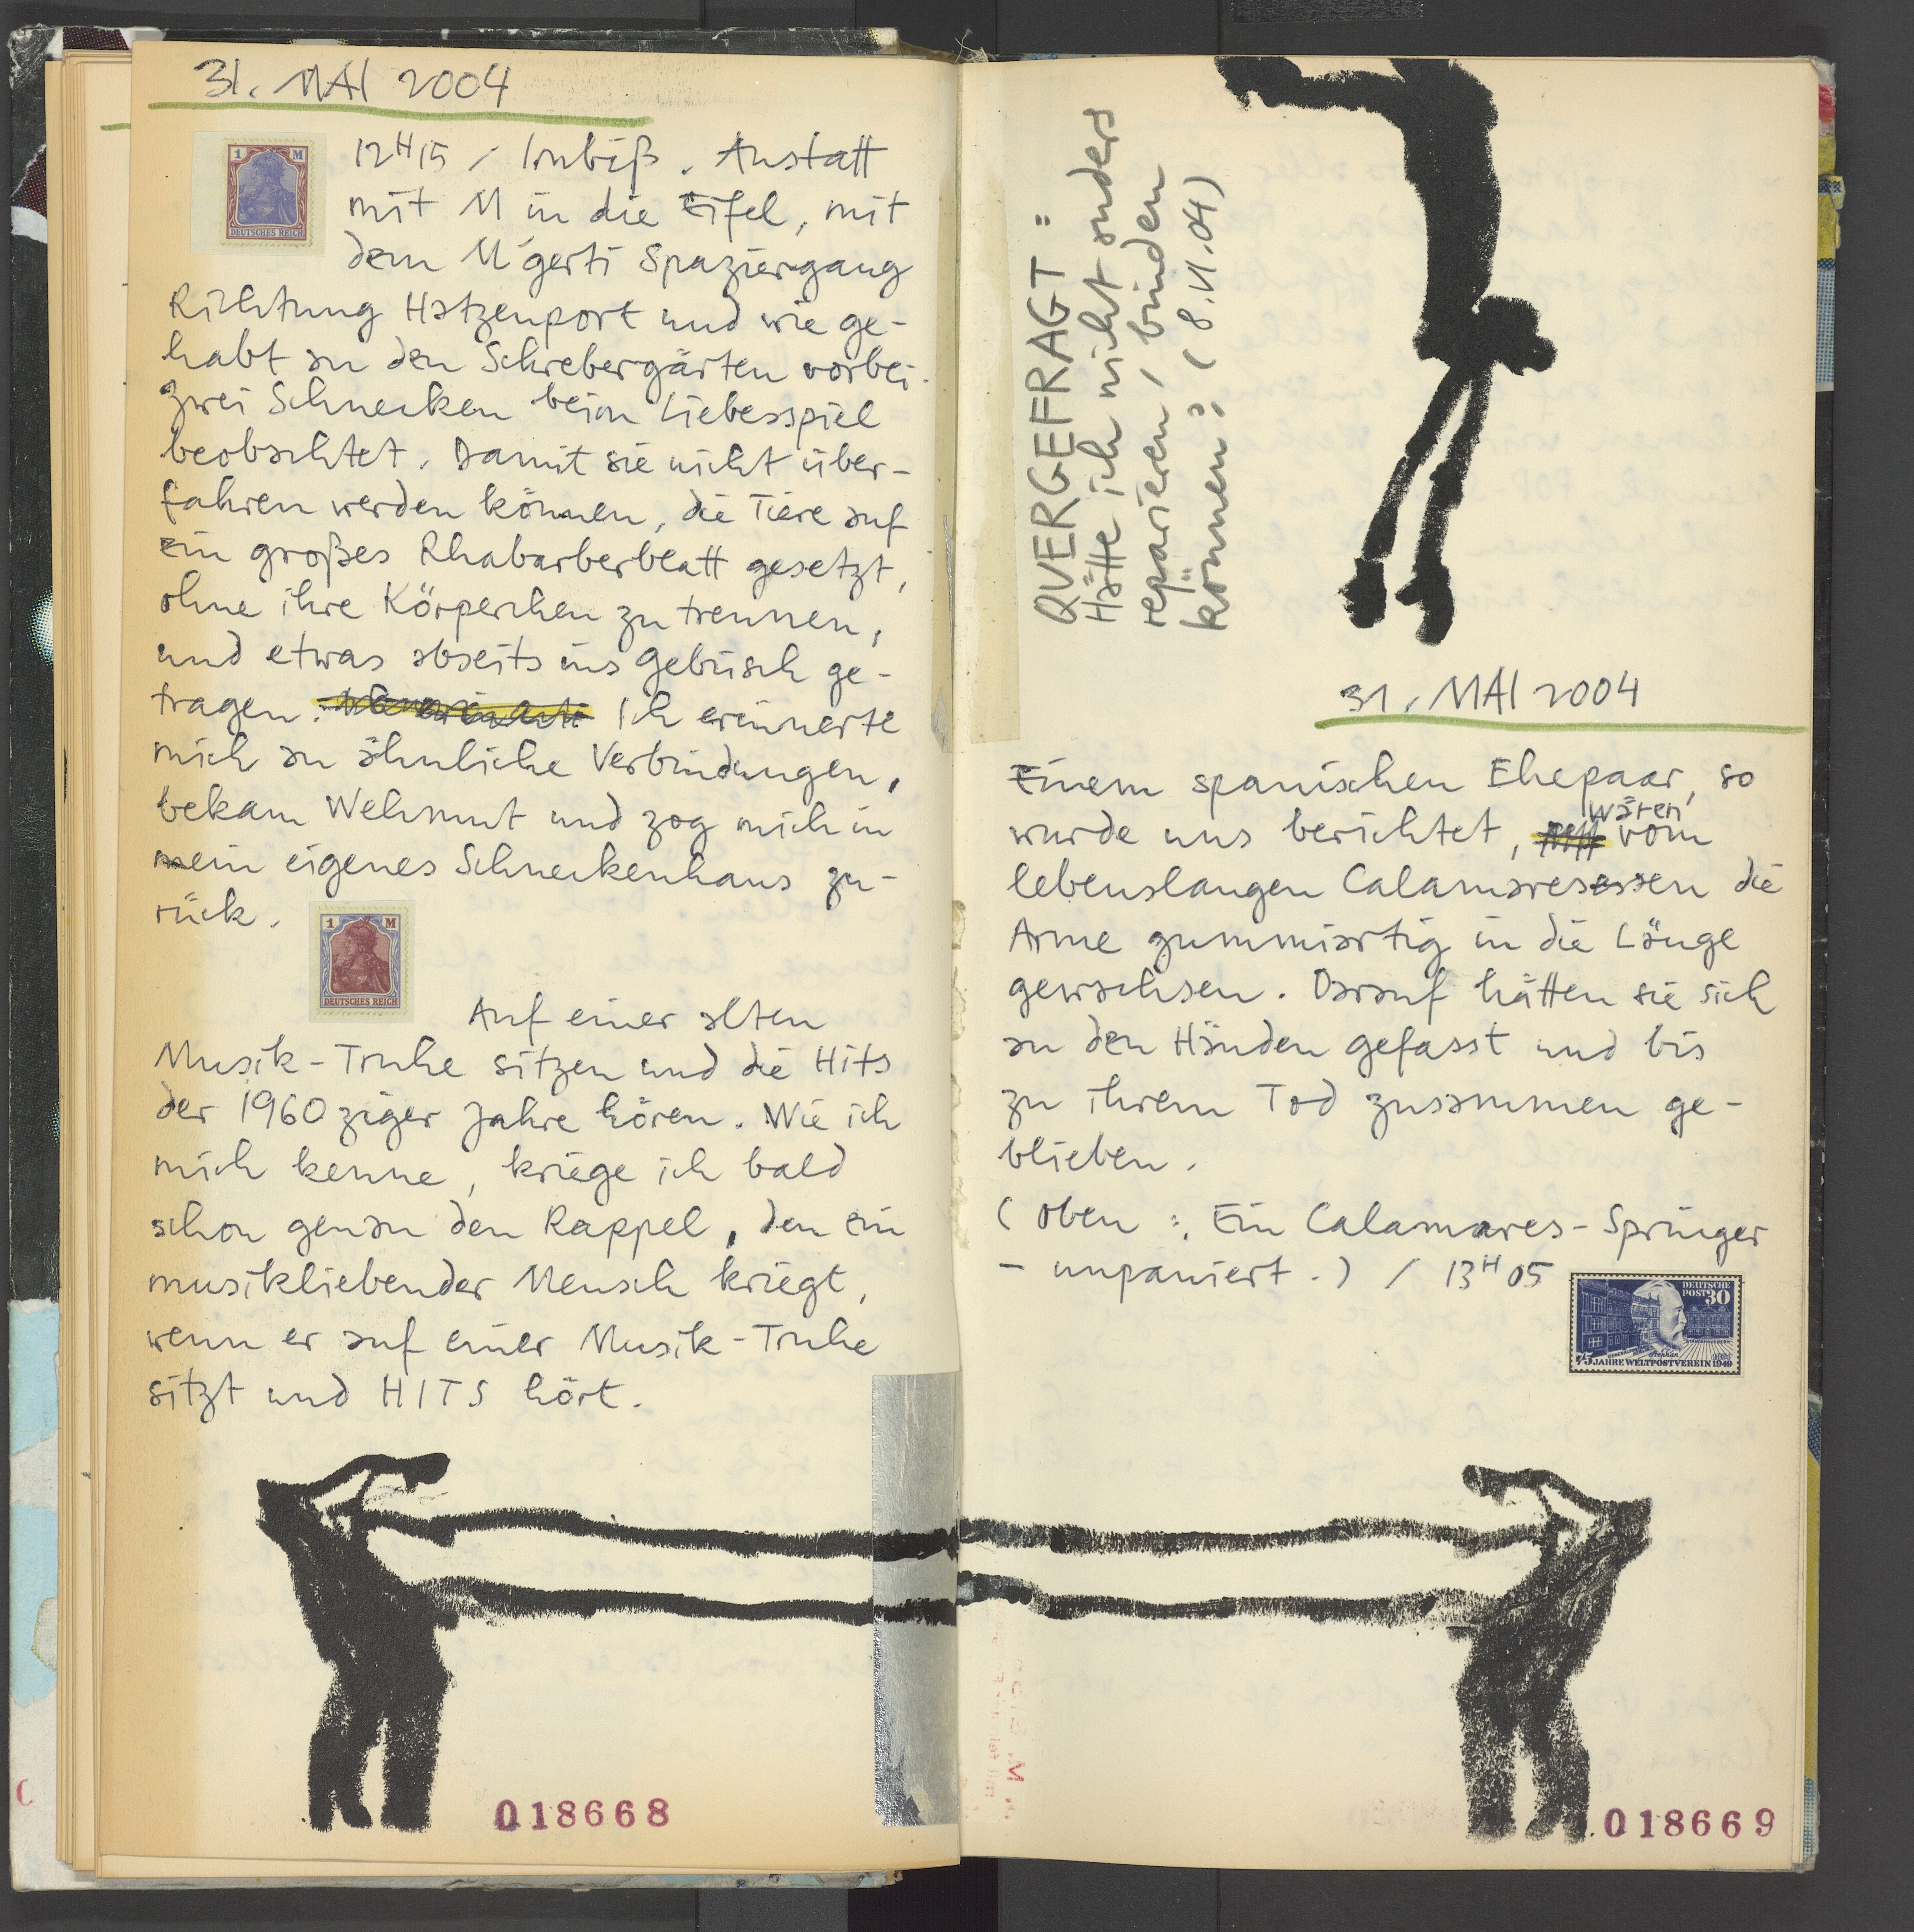 31. MAI 2004
1 M
DEUTSCHES REICH
12H15 / Imbiß. Anstatt
mit M in die Eifel, mit
dem M'gerti Spaziergang
Richtung Hatzenport und wie ge-
habt an den Schrebergärten vorbei.
Zwei Schnecken beim Liebesspiel
beobachtet. Damit sie nicht über-
fahren werden können, die Tiere auf
ein großes Rhabarberblatt gesetzt,
ohne ihre Körperchen zu trennen,
und etwas abseits ins Gebüsch ge-
tragen. Ich erinnerte
mich an ähnliche Verbindungen,
bekam Wehmut und zog mich in
mein eigenes Schneckenhaus zu-
rück.
1 M
DEUTSCHES REICH
Auf einer alten
Musik-Truhe sitzen und die Hits
der 1960ziger Jahre hören. Wie ich
mich kenne, kriege ich bald
schon genau den Rappel, den ein
musikliebender Mensch kriegt,
wenn er auf einer Musik-Truhe
sitzt und HITS hört.
018668
QUERGEFRAGT:
Hätte ich nicht anders
reparieren / binden
können? (8.VI.04)
31. MAI 2004
Einem spanischen Ehepaar, so
wurde uns berichtet, wären vom
lebenslangen Calamaresessen die
Arme gummiartig in die Länge
gewachsen. Darauf hätten sie sich
an den Händen gefasst und bis
zu ihrem Tod zusammen ge-
blieben.
(Oben: Ein Calamares-Springer
- unpaniert.) / 13H05
DEUTSCHE
POST 30
Stephan
75 JAHRE WELTPOSTVEREIN 1949
018669